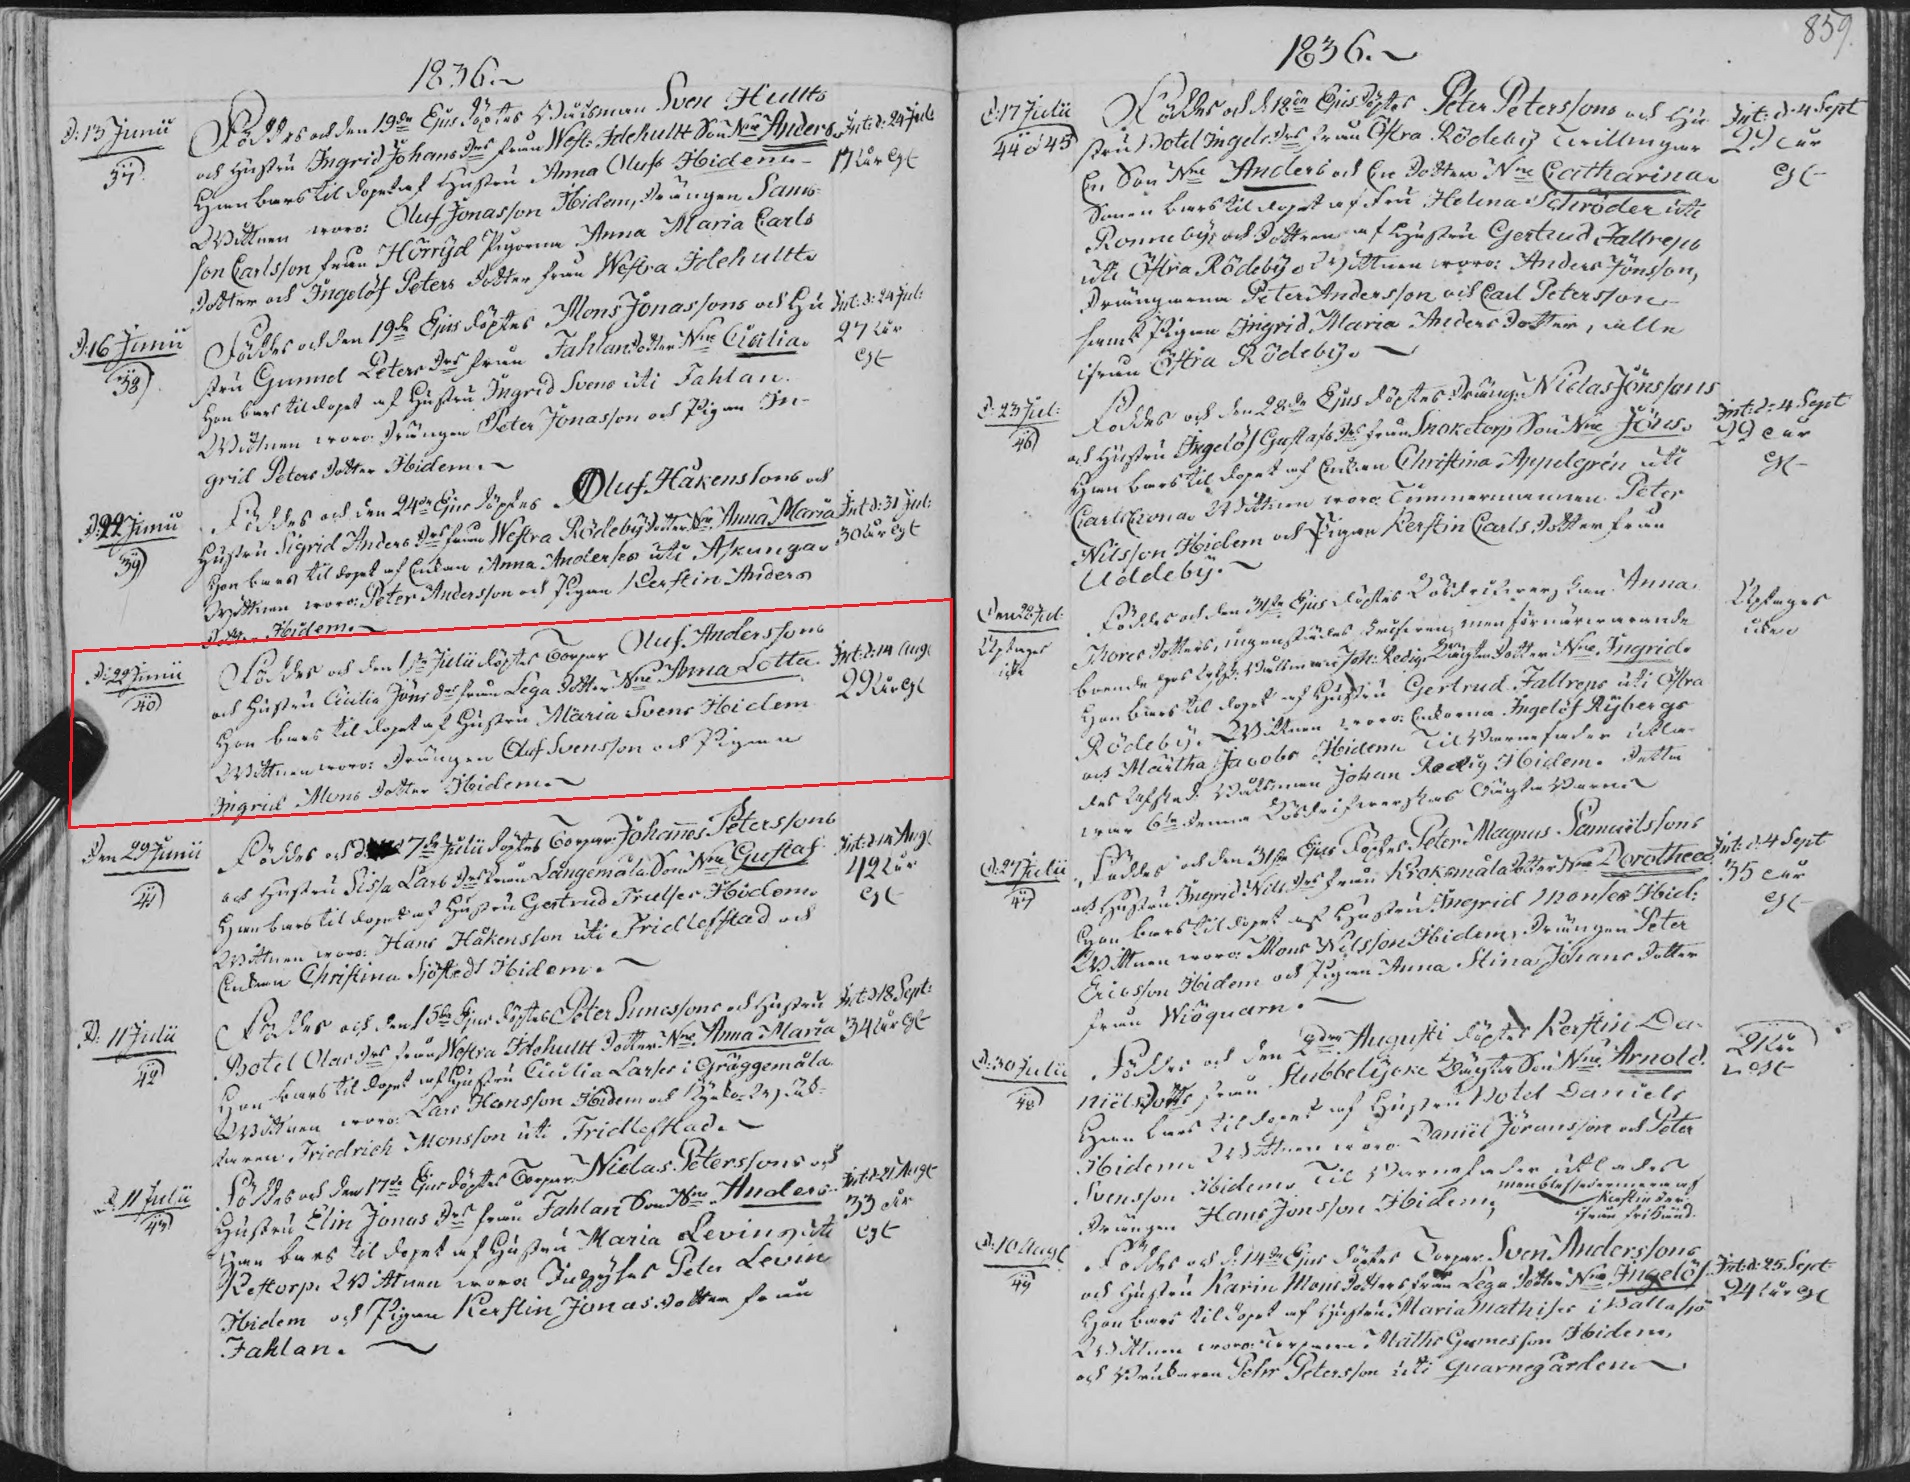 1836.
D: 13 Junii
37
Föddes och den 19de Ejus döptes Husman Sven Hullts
och Hustru Ingrid Johans Drs från Westr: Idehultt Son Nne Anders.
Han bars til dopet af Hustru Anna Olufs Ibidem.
Wittnen woro: Oluf Jonasson Ibidem, Drängen Sams-
son Carlsson från Hörryd Pigorna Anna Maria Carls
Dotter och Ingelöf Peters Dotter från Westra Idehultt.
Int: d: 24 Jul:
17 år gl
D: 16 Junii
38
Föddes och den 19de Ejus döptes Mons Jonassons och Hu
stru Gunnel Peters Drs från Fahlan Dotter Nne Cicilia.
Hon bars til dopet af Hustru Ingrid Svens uti Fahlan.
Wittnen woro: Drängen Peter Jonasson och Pigan In-
grid Peters Dotter Ibidem.
Int: d: 24 Jul:
27 år
gl
D: 22 Junii
39
Föddes och den 24de Ejus döptes Oluf Håkenssons och
Hustru Sigrid Anders Drs från Westra Rödeby Dotter Nne Anna Maria
Hon bars til dopet af Enkan Anna Anderses uti Askunga.
Wittnen woro: Peter Andersson och Pigan Kerstin Anders
Dotter Ibidem.
Int: d: 31 Jul:
30 år gl
D: 22 Junii
40
Föddes och den 1ste Julii döptes Torpar Oluf Anderssons
och Hustru Cicilia Jöns drs från Lega Dotter Nne Anna Lotta.
Hon bars til dopet af Hustru Maria Svens Ibidem
Wittnen woro: Drängen Oluf Svensson och Pigan
Ingrid Mons Dotter Ibidem.
Int: d: 14 Aug:
29 år gl
Den 29 Junii
41
Föddes och d: 17de Julii döptes Torpar Johannes Peterssons
och Hustru Sissa Lars Drs från Långemåla Son Nne Gustaf.
Han bars til dopet af Hustru Gertrud Trulses Ibidem.
Wittnen woro: Hans Håkensson uti Fridlefstad och
Enkan Christina Sjöstedt Ibidem.
Int: d: 14 Aug:
42 år
gl
D: 11 Julii
42
Föddes och den 15de Ejus döptes Peter Sunessons och Hustru
Botel Olas Drs från Westra Idehultt Dotter Nne Anna Maria
Hon bars til dopet af Hustru Cicilia Larses i Gräggemåla.
Wittnen woro: Lars Hansson Ibidem och Kyrko-Wäk-
taren Friedrich Monsson uti Fridlefstad.
Int: d: 18 Sept:
34 år gl
D: 11 Julii
43
Föddes och den 17de Ejus döptes Torpar Niclas Peterssons och
Hustru Elin Jonas Drs från Fahlan Son Nne Anders.
Han bars til dopet af Hustru Maria Levin uti
Kestorp. Wittnen woro: Peter Levin
Ibidem och Pigan Kerstin Jonas Dotter från
Fahlan.
Int: d: 21 Aug:
33 år
gl
859.
1836.
D: 17 Julii
44 o 45
Föddes och d. 18de Ejus döptes Peter Peterssons och Hu
stru Botel Ingels Drs från Östra Rödeby Twillingar
En Son Nne Anders och En Dotter Nne Catharina.
Sonen bars til dopet af Fru Helena Schröder uti
Ronneby, och Dottren af Hustru Gertrud Falltreps
uti Östra Rödeby. Wittnen woro: Anders Jönsson,
Drängarna Peter Andersson och Carl Petersson
samt Pigan Ingrid Maria Anders Dotter, alla
ifrån Östra Rödeby.
Int: d: 4 Sept
29 år
gl
D: 23 Jul:
46
Föddes och den 28de Ejus döptes Dräng: Niclas Jönssons
och Hustru Ingelöf Gustafs Drs från Snoketorp Son Nne Jöns.
Han bars til dopet af Enkan Christina Appelgren uti
Carlscrona. Wittnen woro: Timmermannen Peter
Nilsson Ibidem och Pigan Kerstin Carls Dotter från
Uddeby.
Int: d: 4 Sept
29 år
gl
Den 26 Jul:
Uptages
icke
Föddes och den 31ste Ejus döptes Anna
Thores Dotters, men för närwarande
boende Joh: Redigs Oägta Dotter Nne Ingrid.
Hon bars til dopet af Hustru Gertrud Falltreps uti Östra
Rödeby. Wittnen woro: Enkorna Ingelöf Rybergs
och Märtha Jacobs Ibidem. Til Barnefader utla-
des Johan Redig Ibidem. Detta
war 6te denna Oägta Barn
Uptages
icke
D: 27 Julii
47
Föddes och den 31ste Ejus döptes Peter Magnus Samuelssons
och Hustru Ingrid Nils Drs från Kroksmåla Dotter Nne Dorothea
Hon bars til dopet af Hustru Ingrid Monses Ibid:
Wittnen woro: Mons Nilsson Ibidem, Drängen Peter
Ericsson Ibidem och Pigan Anna Stina Johans Dotter
från Wiöquarn.
Int: d. 4 Sept
35 år
gl
D: 30 Julii
48
Föddes och den 2dra Augusti döptes Kerstin Da-
niels Dotts från Stubbelycke Oägta Son Nne Arnold.
Han bars til dopet af Hustru Botel Daniels
Ibidem. Wittnen woro: Daniel Jöransson och Peter
Svensson Ibidem. Til Barnefader utlades
Drängen Hans Jonsson Ibidem,
21 år
gl
D: 10 Aug:
49
Föddes och d. 14de Ejus döptes Torpar Sven Anderssons
och Hustru Karin Mons Dotters från Lega Dotter Nne Ingelöf.
Hon bars til dopet af Hustru Maria Mathises i Wallasjö
Wittnen woro: Torparen Maths Gumesson Ibidem,
och Brukaren Pehr Petersson uti Quarnegården.
Int: d: 25 Sept
24 år gl